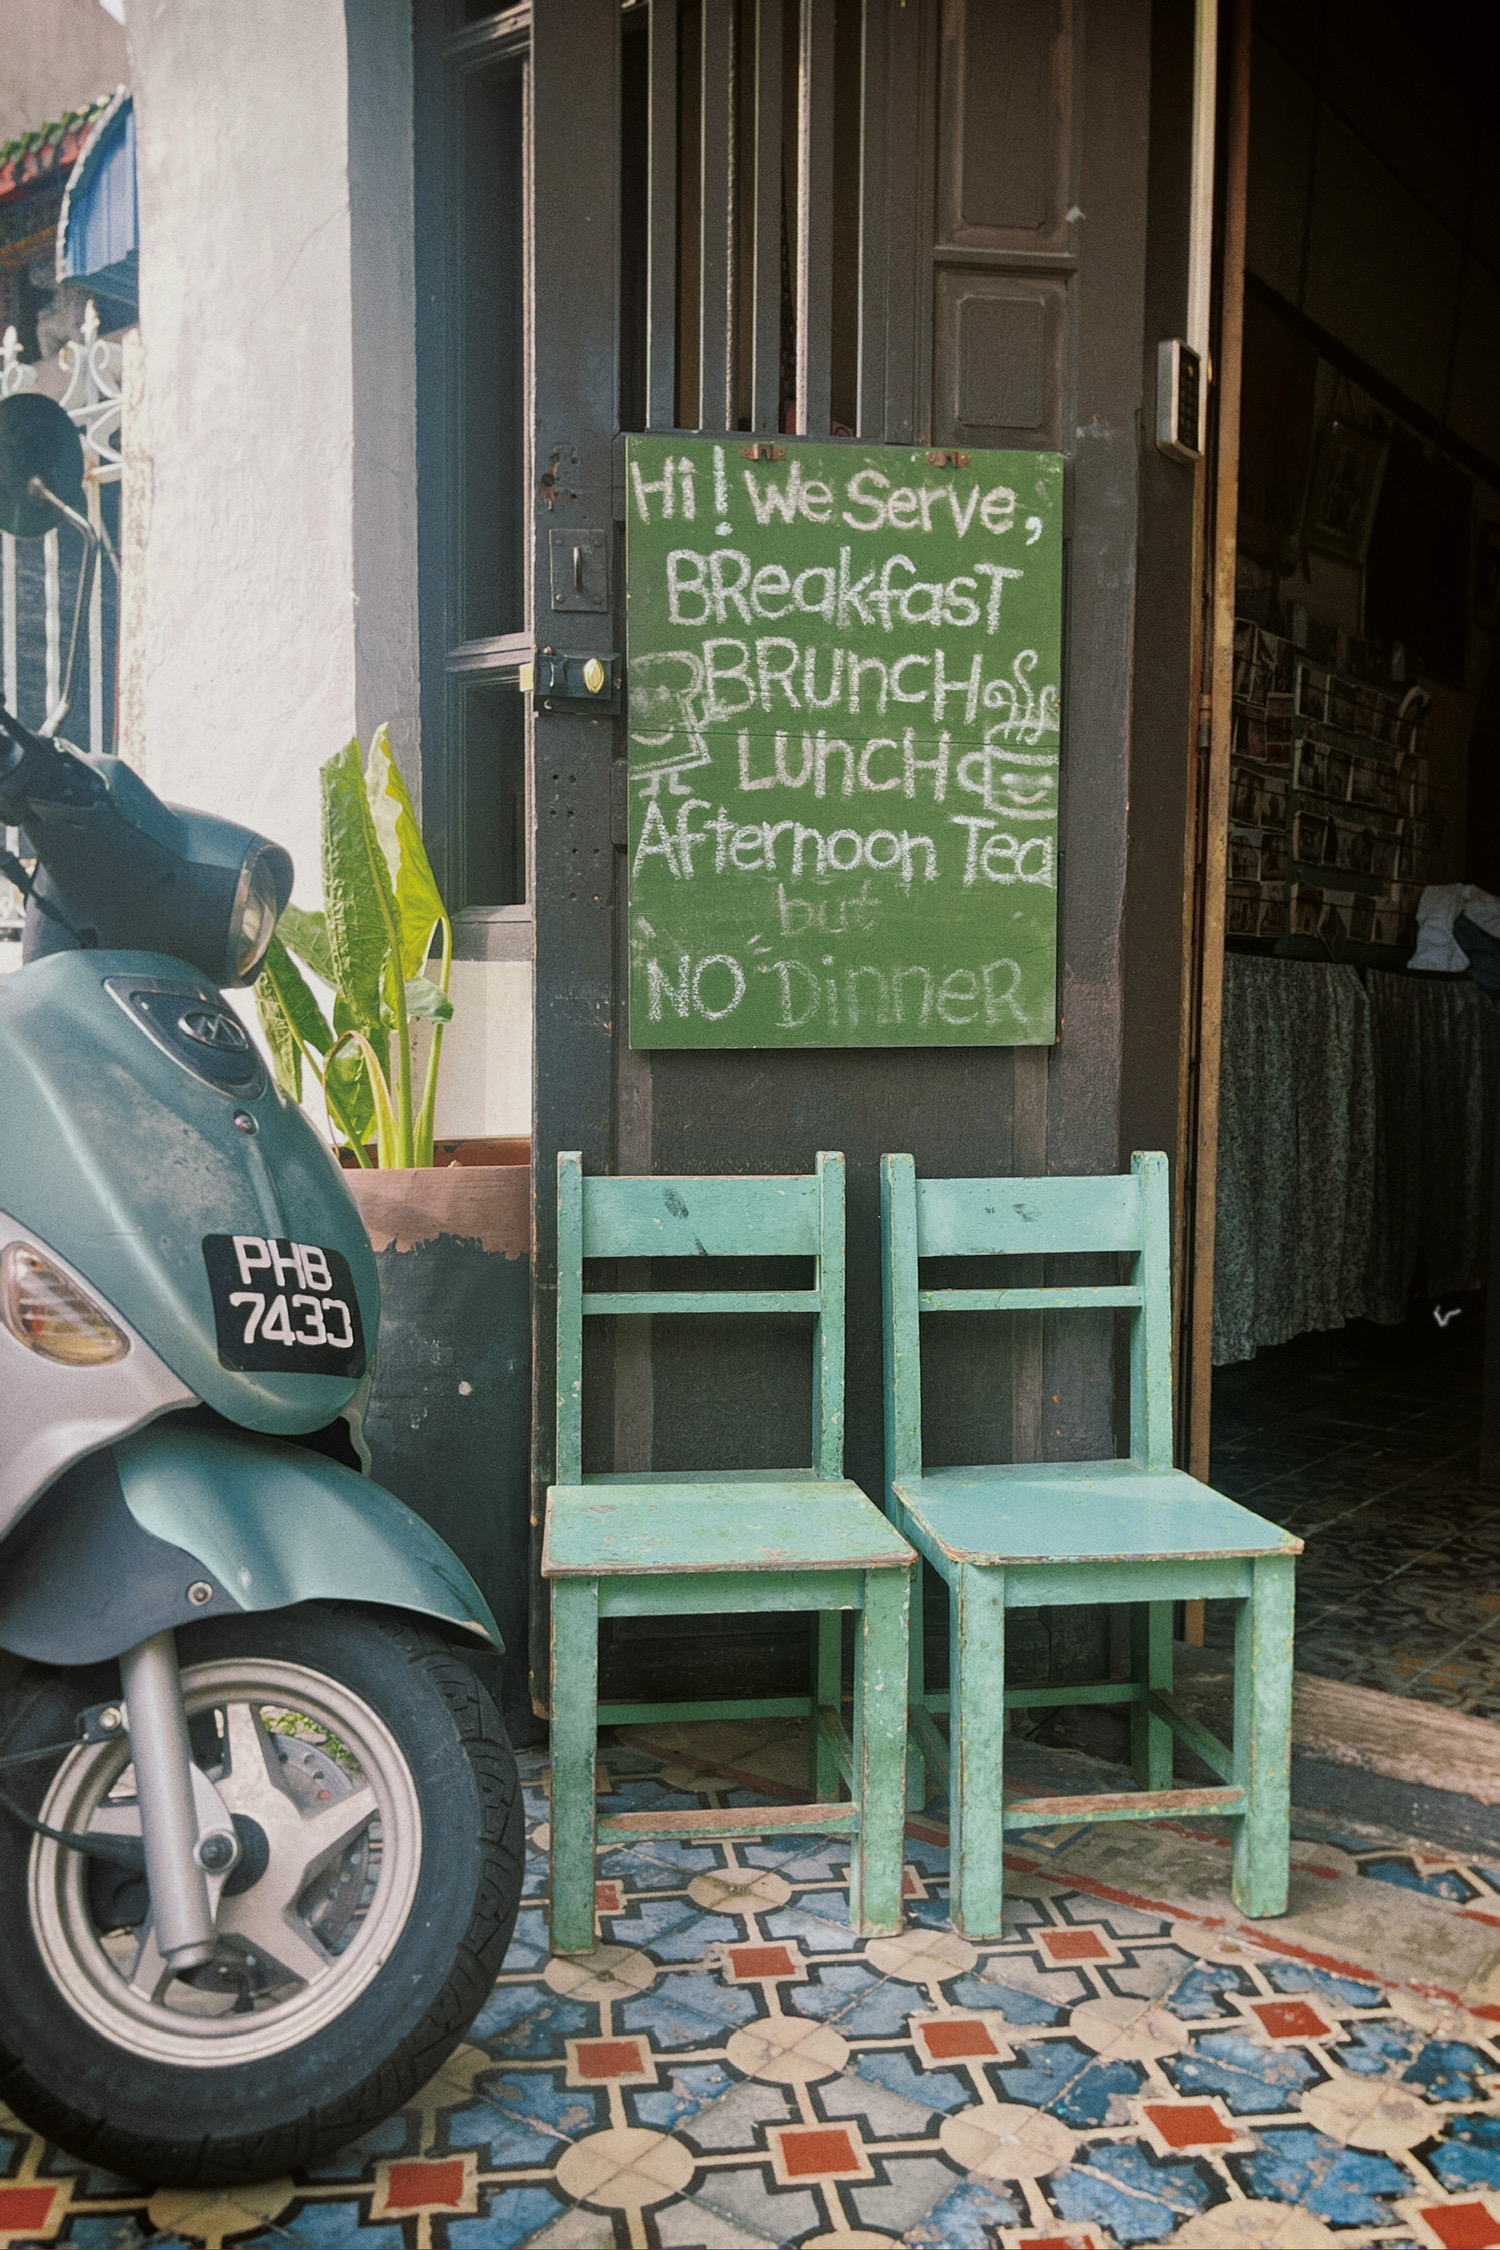 Hi! We Serve,
BReakfasT
BRUncH
LUncH
Afternoon Tea
but
NO DinneR
PHB
7433